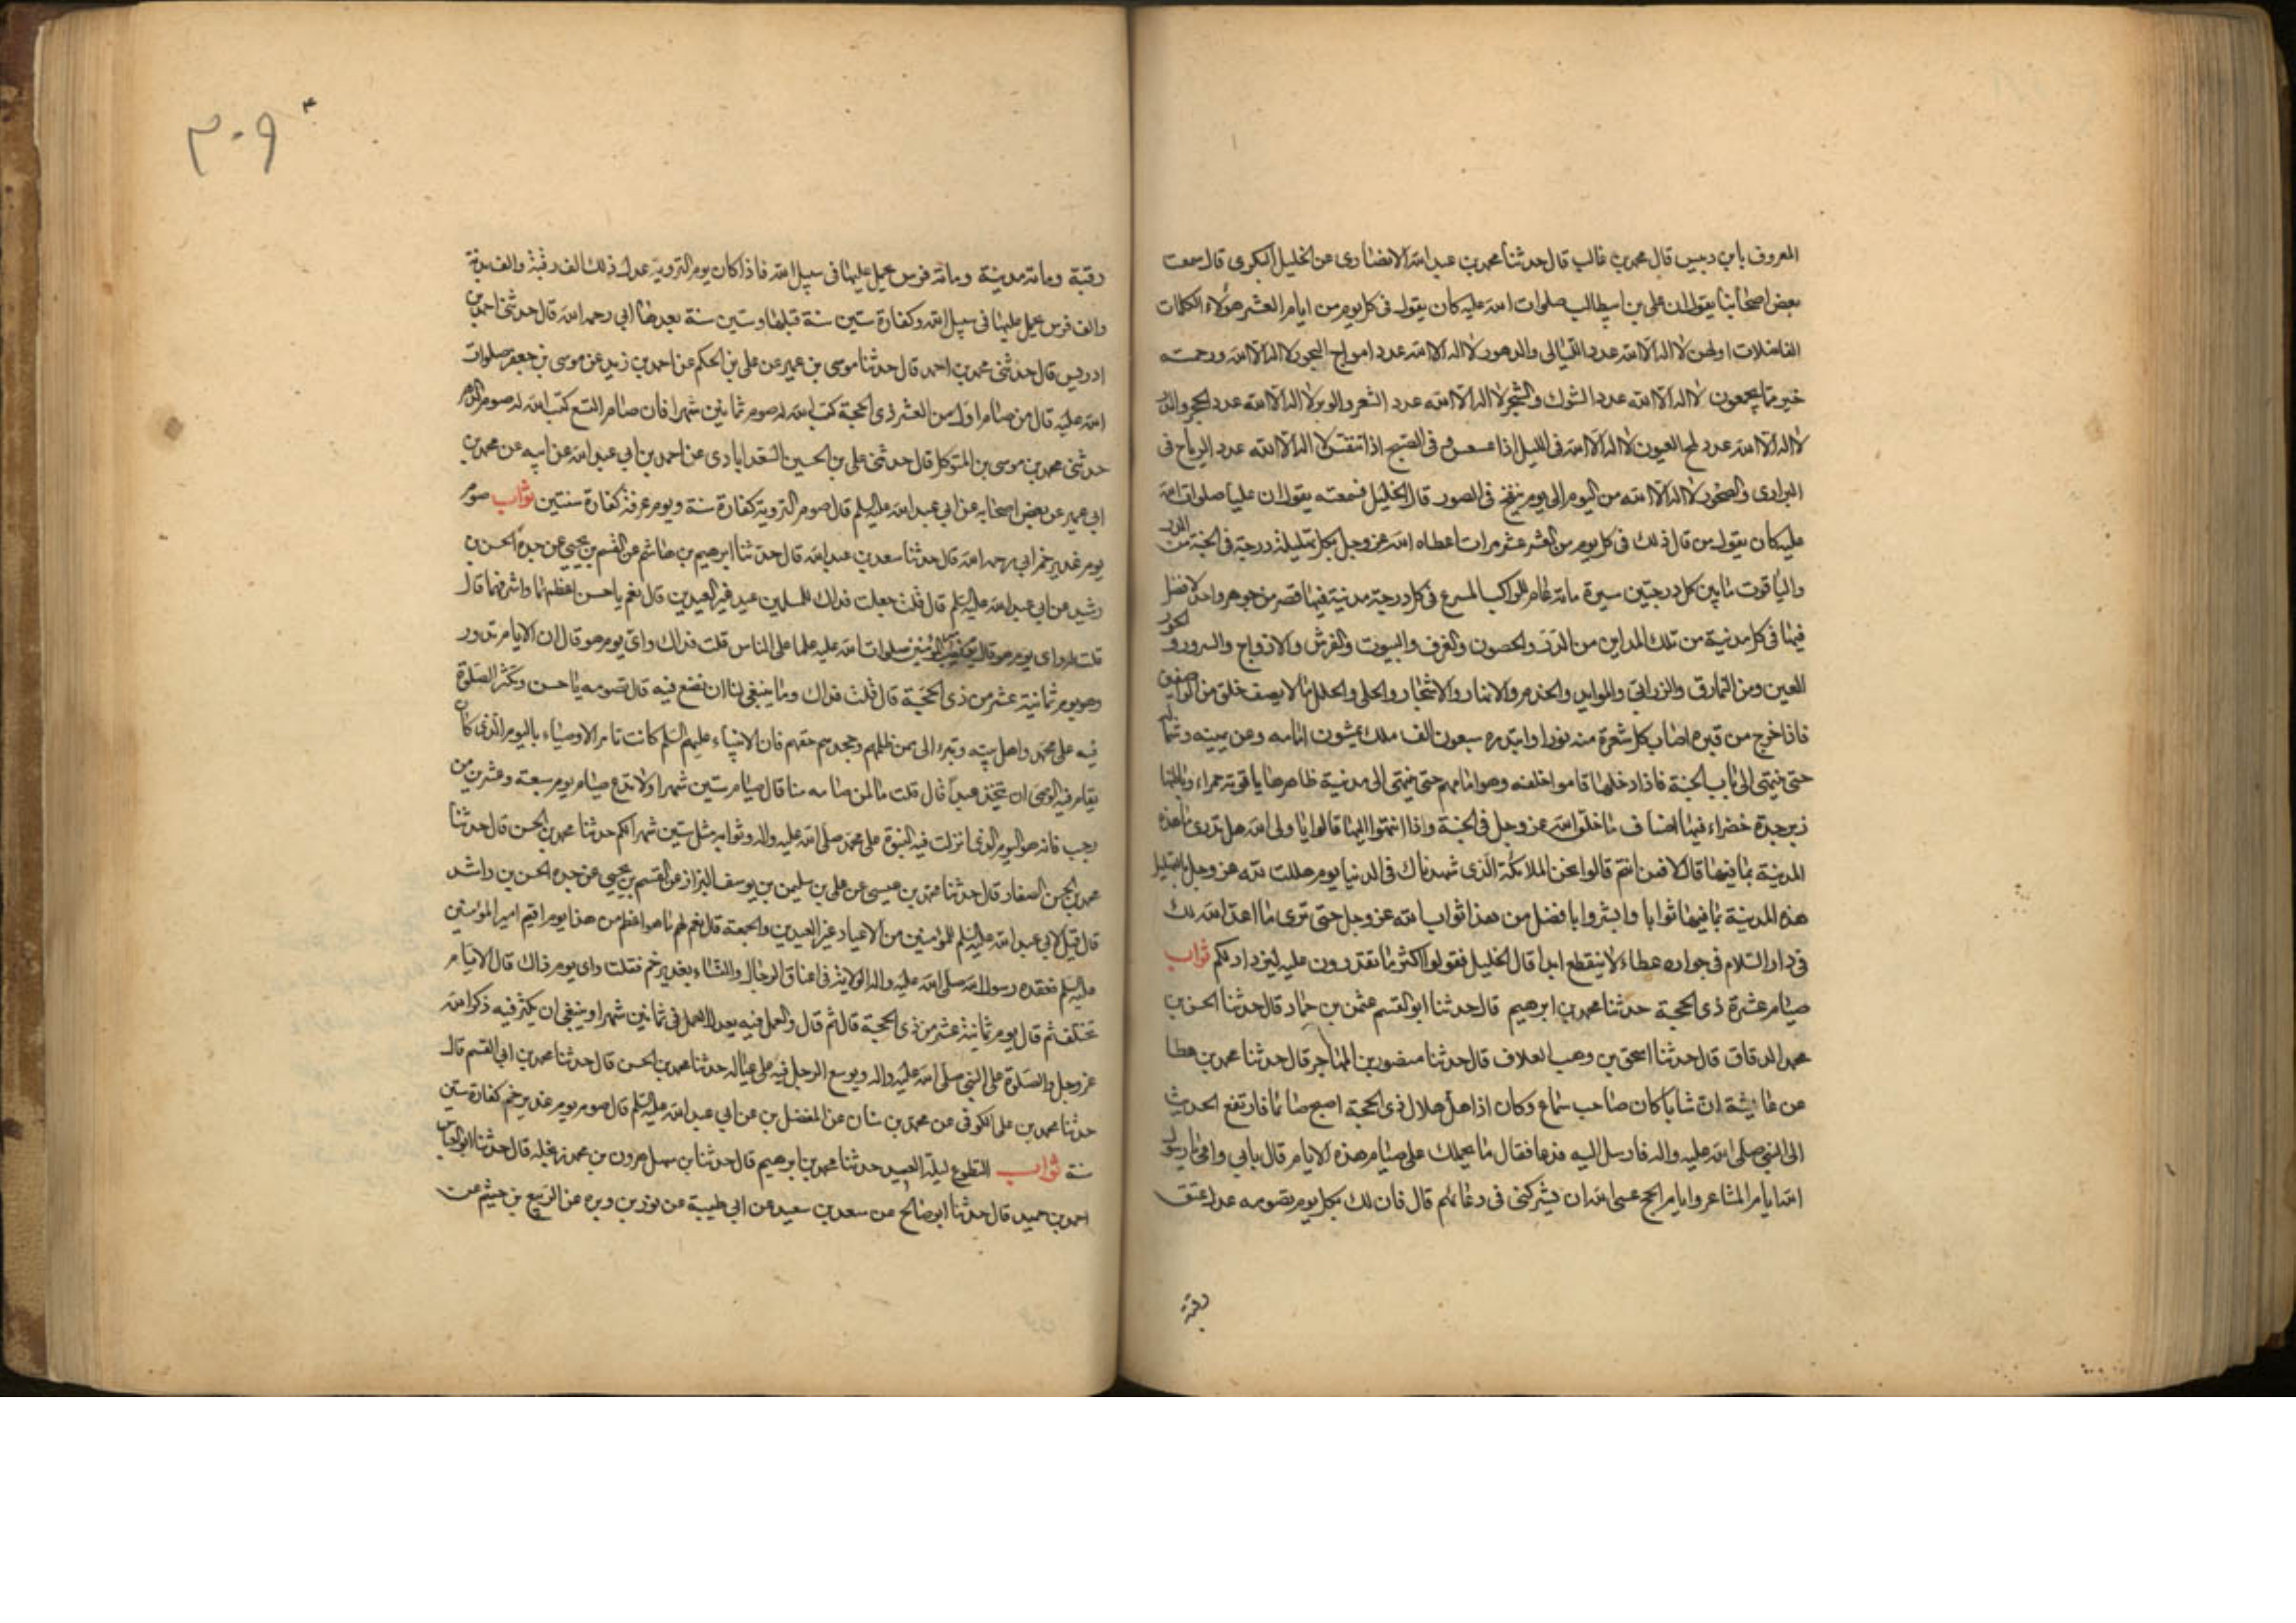 المعروف بابن دبيس قال محمد بن غالب قال حدثنا محمد بن عبد الله الانصاري عن الخليل البكري قال سمعت
بعض اصحابنا يقول ان علي بن ابيطالب صلوات الله عليه كان يقول في كل يوم من ايام العشر هؤلاء الكلمات
الفاضلات اولهن لا اله الا الله عدد الليالي والدهور لا اله الا الله عدد امواج البحور لا اله الا الله ورحمته
خير مما يجمعون لا اله الا الله عدد الشوك والشجر لا اله الا الله عدد الشعر والوبر لا اله الا الله عدد الحجر والمدر
لا اله الا الله عدد لمح العيون لا اله الا الله في الليل اذا عسعس و في الصبح اذا تنفس لا اله الا الله عدد الرياح في
البراري والصخور لا اله الا الله من اليوم الى يوم ينفخ في الصور قال الخليل فسمعته يقول ان عليا صلوات الله
عليه كان يقول من قال ذلك في كل يوم من العشر عشر مرات اعطاه الله عز وجل بكل تهليلة درجة في الجنة من الدر
والياقوت ما بين كل درجتين مسيرة مائة عام للراكب المسرع في كل درجة مدينة فيها قصر من جوهر واحد لا فصل
فيها في كل مدينة من تلك المداين من الدور والحصون والغرف والبيوت والفرش والازواج والسرور والحور
العين ومن النمارق والزرابي والموايد والخدم والانهار والاشجار والحلي والحلل ما لا يصف خلق من الواصفين
فاذا خرج من قبره اضاءت كل شعرة منه نورا وابتدره سبعون الف ملك يمشون امامه وعن يمينه وشماله
حتى ينتهي الى باب الجنة فاذا دخلها قاموا خلفه وهو امامهم حتى ينتهي الى مدينة ظاهرها ياقوتة حمراء وباطنها
زبرجدة خضراء فيها اصناف ما خلق الله عز وجل في الجنة واذا انتهوا اليها قالوا يا ولي الله هل تدري ما هذه
المدينة بما فيها قال لا فمن انتم قالوا نحن الملائكة الذي شهدناك في الدنيا يوم هللت لله عز وجل بالتهليل
هذه المدينة بما فيها ثوابا وابشر وا بافضل من هذا ثواب الله عز وجل حتى ترى ما اعد الله لك
في دار السلام في جواره عطاء لا ينقطع ابدا قال الخليل فقولوا اكثر ما تقدرون عليه ليزداد لكم ثواب
صيام عشرة ذي الحجة حدثنا محمد بن ابرهيم قال حدثنا ابو القسم عثمن بن حماد قال حدثنا الحسن بن
محمد الدقاق قال حدثنا اسحق بن وهب العلاف قال حدثنا منصور بن المهاجر قال حدثنا محمد بن عطا
عن عايشة ان شابا كان صاحب سماع وكان اذا هل هلال ذي الحجة اصبح صائما فارتفع الحديث
الى النبي صلى الله عليه واله فارسل اليه فدعا فقال ما يحملك على صيام هذه الايام قال بابي وامي يا رسول
الله ايام المشاعر وايام الحج عسى الله ان يشركني في دعائهم قال فان لك بكل يوم تصومه عدل عتق
رقبة
٣٠٩
رقبة ومائة مدينة ومائة فرس يحمل عليها في سبيل الله فاذا كان يوم التروية عدل ذلك الف رقبة والف بدنة
والف فرس يحمل عليها في سبيل الله وكفارة ستين سنة قبلها وستين سنة بعدها ابي رحمه الله قال حدثني احمد بن
ادريس قال حدثني محمد بن احمد قال حدثنا موسى بن عمير عن علي بن الحكم عن احمد بن زيد عن موسى بن جعفر صلوات
الله عليه قال من صام اول من العشر ذي الحجة كتب الله له صوم ثمانين شهرا فان صام التسع كتب الله له صوم الدهر
حدثني محمد بن موسى بن المتوكل قال حدثني علي بن الحسين السعدابادي عن احمد بن ابي عبد الله عن ابيه عن محمد بن
ابي عمير عن بعض اصحابه عن ابي عبد الله عليه السلم قال صوم التروية كفارة سنة ويوم عرفة كفارة سنتين ثواب صوم
يوم غدير خم ابي رحمه الله قال حدثنا سعد بن عبد الله قال حدثنا ابرهيم بن هاشم عن القسم بن يحيى عن جده الحسن بن
رشيد عن ابي عبد الله عليه السلم قال قلت جعلت فداك للمسلمين عيد غير العيدين قال نعم يا حسن اعظمها واشرفها قال
قلت له واي يوم هو قال يوم نصب امير المؤمنين صلوات الله عليه علما على الناس قلت فداك واي يوم هو قال ان الايام تدور
وهو يوم ثمانية عشر من ذي الحجة قال قلت فداك وما ينبغي لنا ان نصنع فيه قال تصومه يا حسن وتكثر الصلوة
فيه على محمد واهل بيته وتبرء الى من ظلمهم وجحدهم حقهم فان الانبياء عليهم السلم كانت تامر الاوصياء باليوم الذي كان
يقام فيه الوصي ان يتخذ عيدا قال قلت ما لمن صامه منا قال صيام ستين شهرا ولا تدع صيام يوم سبعة وعشرين من
رجب فانه هو اليوم الذي انزلت فيه النبوة على محمد صلى الله عليه واله وثوابه مثل ستين شهرا لكم حدثنا محمد بن الحسن قال حدثنا
محمد بن الحسن الصفار قال حدثنا محمد بن عيسى عن علي بن سليمن بن يوسف البزاز عن القسم بن يحيى عن جده الحسن بن راشد
قال قيل لابي عبد الله عليه السلم للمؤمنين من الاعياد غير العيدين والجمعة قال نعم لهم ما هو اعظم من هذا يوم اقيم امير المؤمنين
عليه السلم فعقده رسول الله صلى الله عليه واله الولاية في اعناق الرجال والنساء بغدير خم فقلت واي يوم ذاك قال الايام
تختلف ثم قال يوم ثمانية عشر من ذي الحجة قال ثم قال والعمل فيه يعدل العمل في ثمانين شهرا وينبغي ان يكثر فيه ذكر الله
عز وجل والصلوة على النبي صلى الله عليه واله ويوسع الرجل فيه على عياله حدثنا محمد بن الحسن قال حدثنا محمد بن ابي القسم قال
حدثنا محمد بن علي الكوفي عن محمد بن سنان عن المفضل بن عن ابي عبد الله عليه السلم قال صوم يوم غدير خم كفارة ستين
سنة ثواب التطوع ليلة العيد حدثنا محمد بن ابرهيم قال حدثنا بن سهل هرون بن محمد قال حدثنا ابو العباس
احمد بن حميد قال حدثنا ابو صالح عن سعد بن سعيد عن ابي طيبة عن بن وبره عن الربيع بن خيثم عن